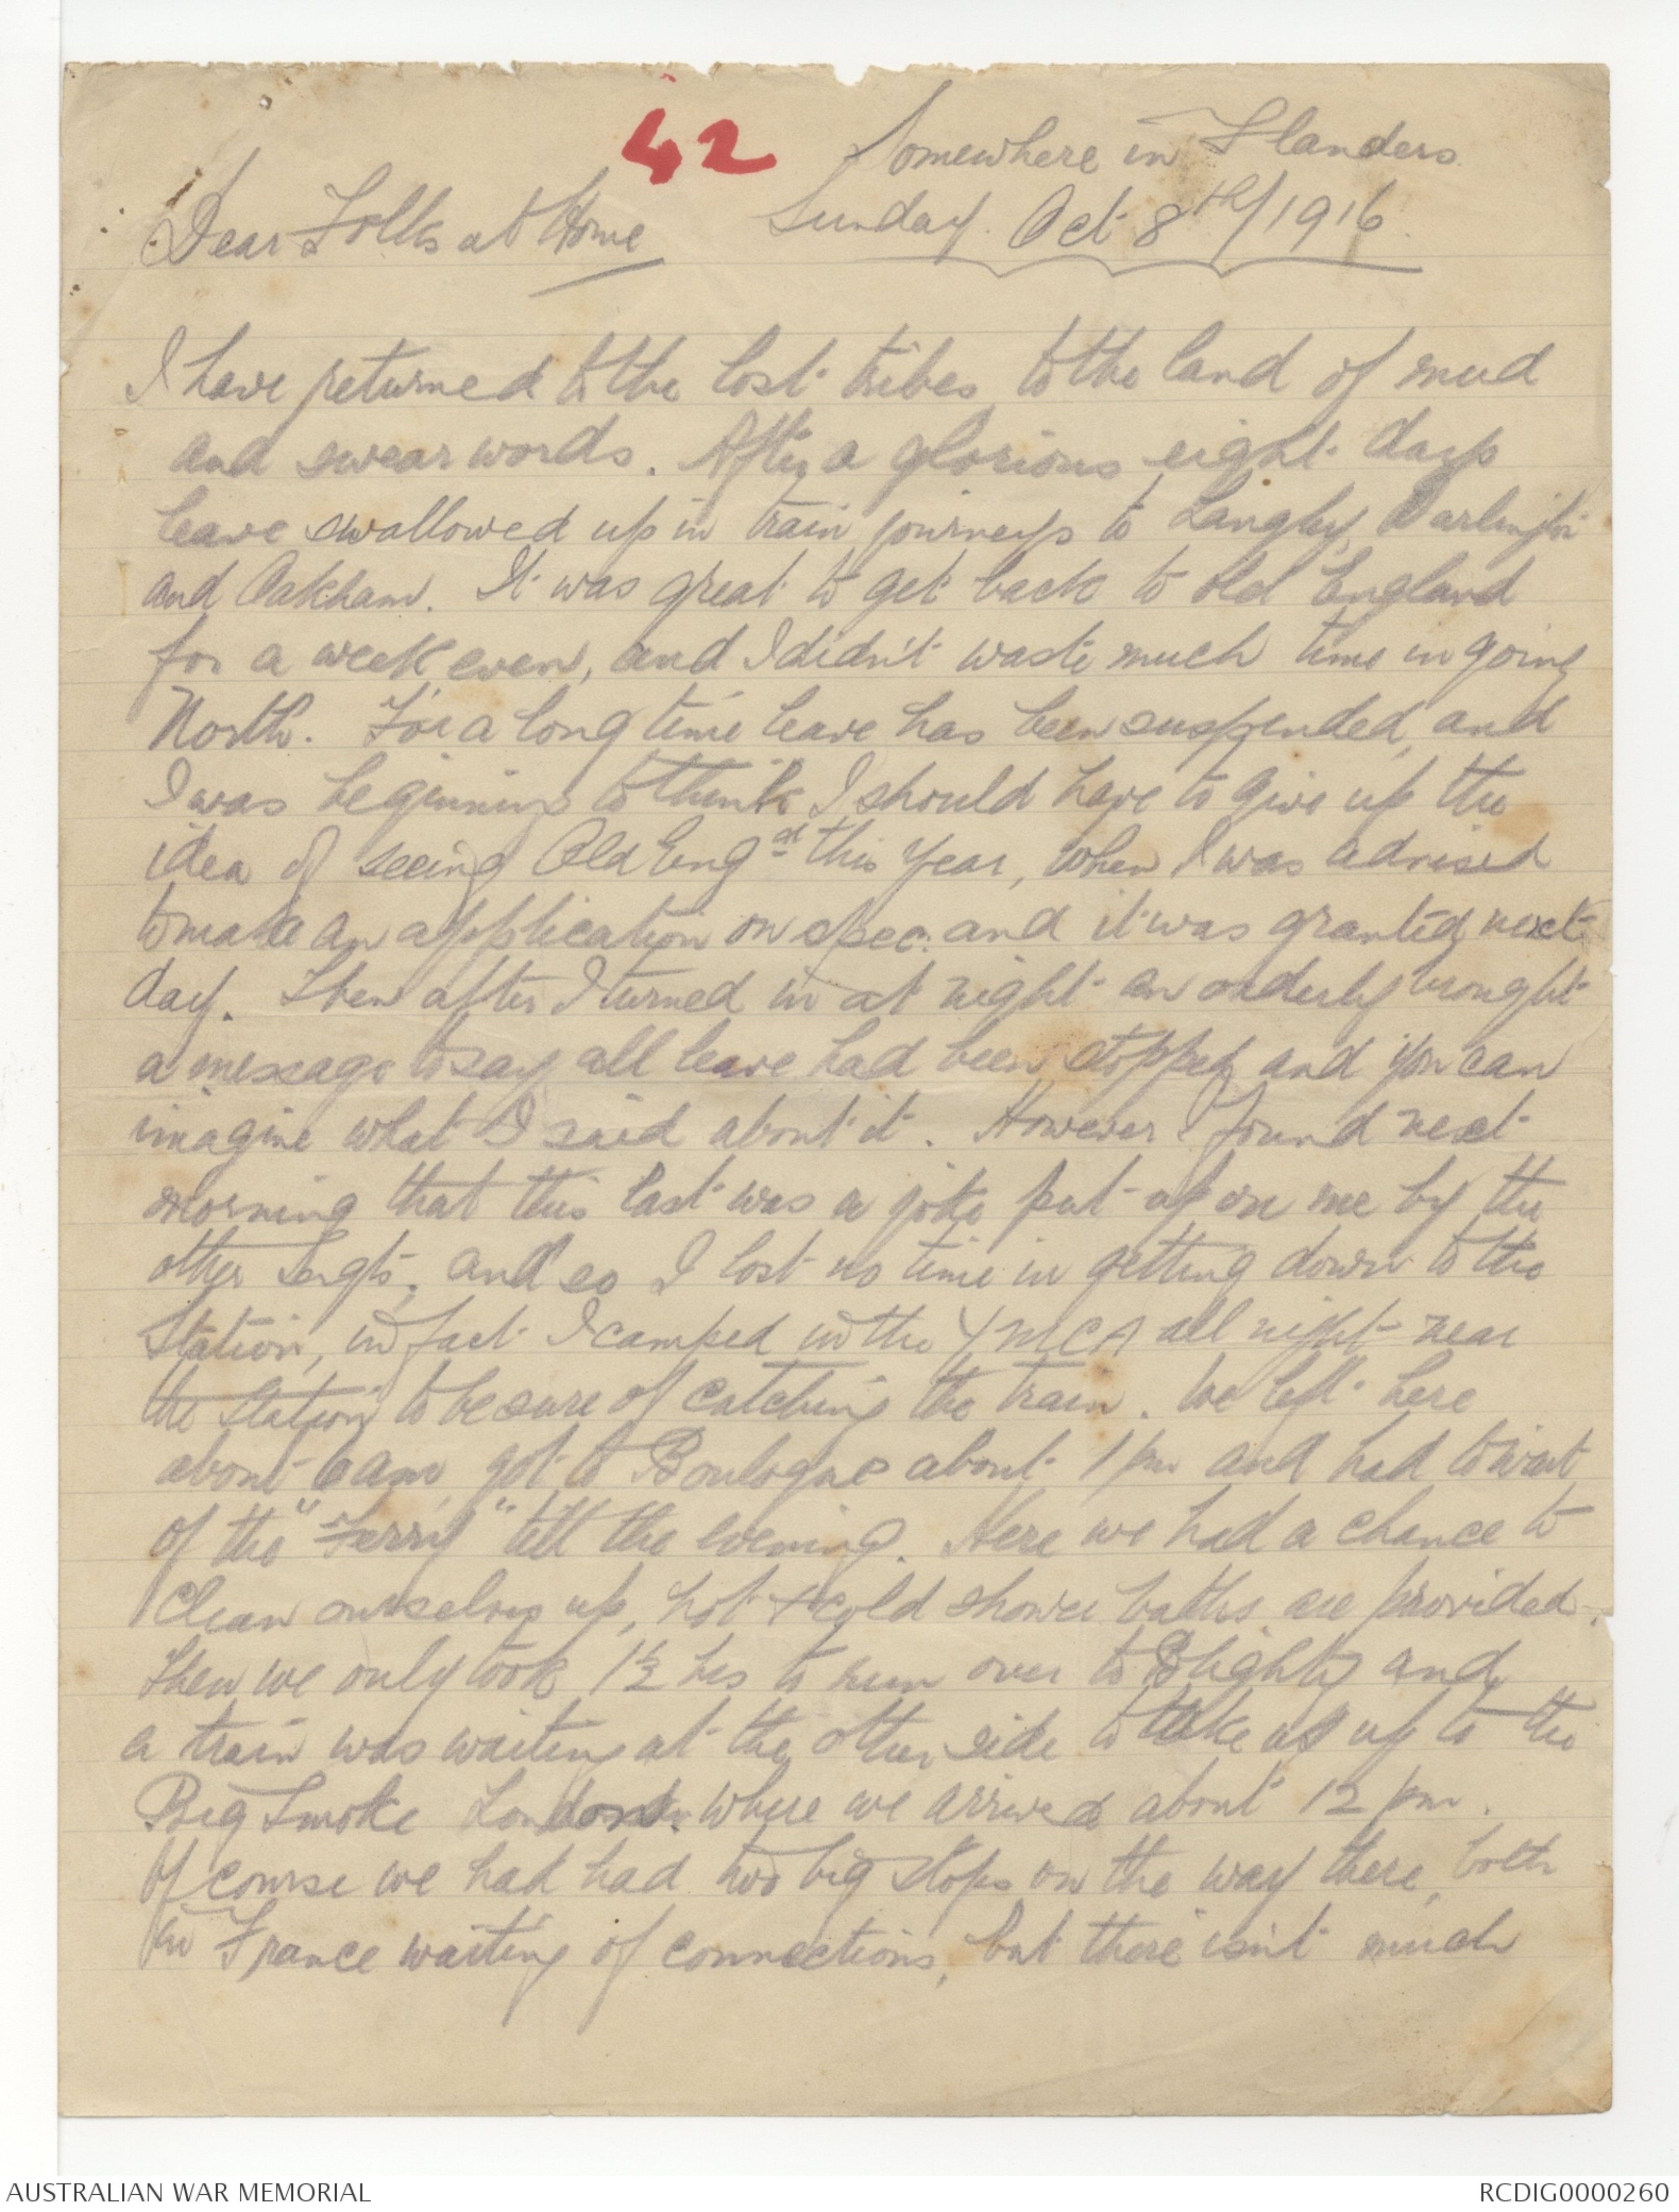 42
Somewhere in Flanders
Sunday. Oct 8th/1916
Dear Folks at Home
I have returned to the lost tribes, to the land of mud
and swear words. After a glorious eight days
leave swallowed up in train journeys to Langley, Darlington
and Oakham. It was great to get back to old England
for a week even, and I didn't waste much time in going
North. For a long time leave has been suspended, and
I was beginning to think I should have to give up the
idea of seeing Old Engd this year, when I was advised
to make an application on spec. and it was granted next
day. Then after I turned in at night an orderly brought
a message to say all leave had been stopped and you can
imagine what I said about it. However I found next
morning that this last was a joke put up on me by the
other Sergts. and so I lost no time in getting down to the
Station, in fact I camped in the YMCA all night near
the station to be sure of catching the train. We left here
about 6am, got to Boulogne about 1 pm and had to wait
of the "Ferry" till the evening. Here we had a chance to
clean ourselves up, hot & cold shower baths are provided.
Then we only took 1½ hrs to run over to Blighty and
a train was waiting at the other side to take us up to the
Big Smoke London. where we arrived about 12 pm.
Of course we had had two big stops on the way there, both
in France waiting of connections, but there isn't much
AUSTRALIAN WAR MEMORIAL
RCDIG0000260